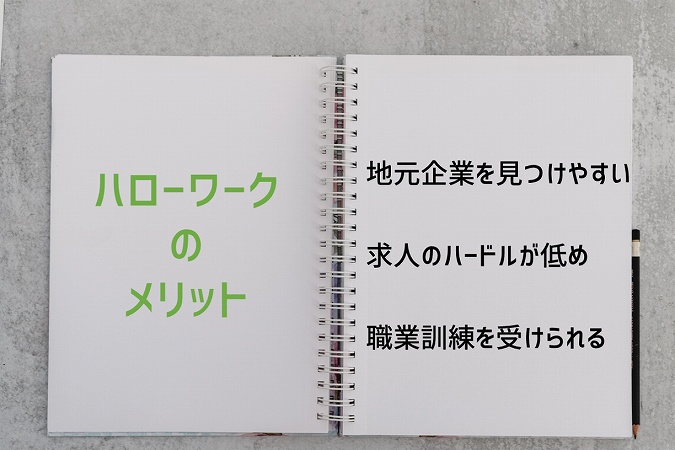 ハローワーク
の
メリット
地元企業を見つけやすい
求人のハードルが低め
職業訓練を受けられる